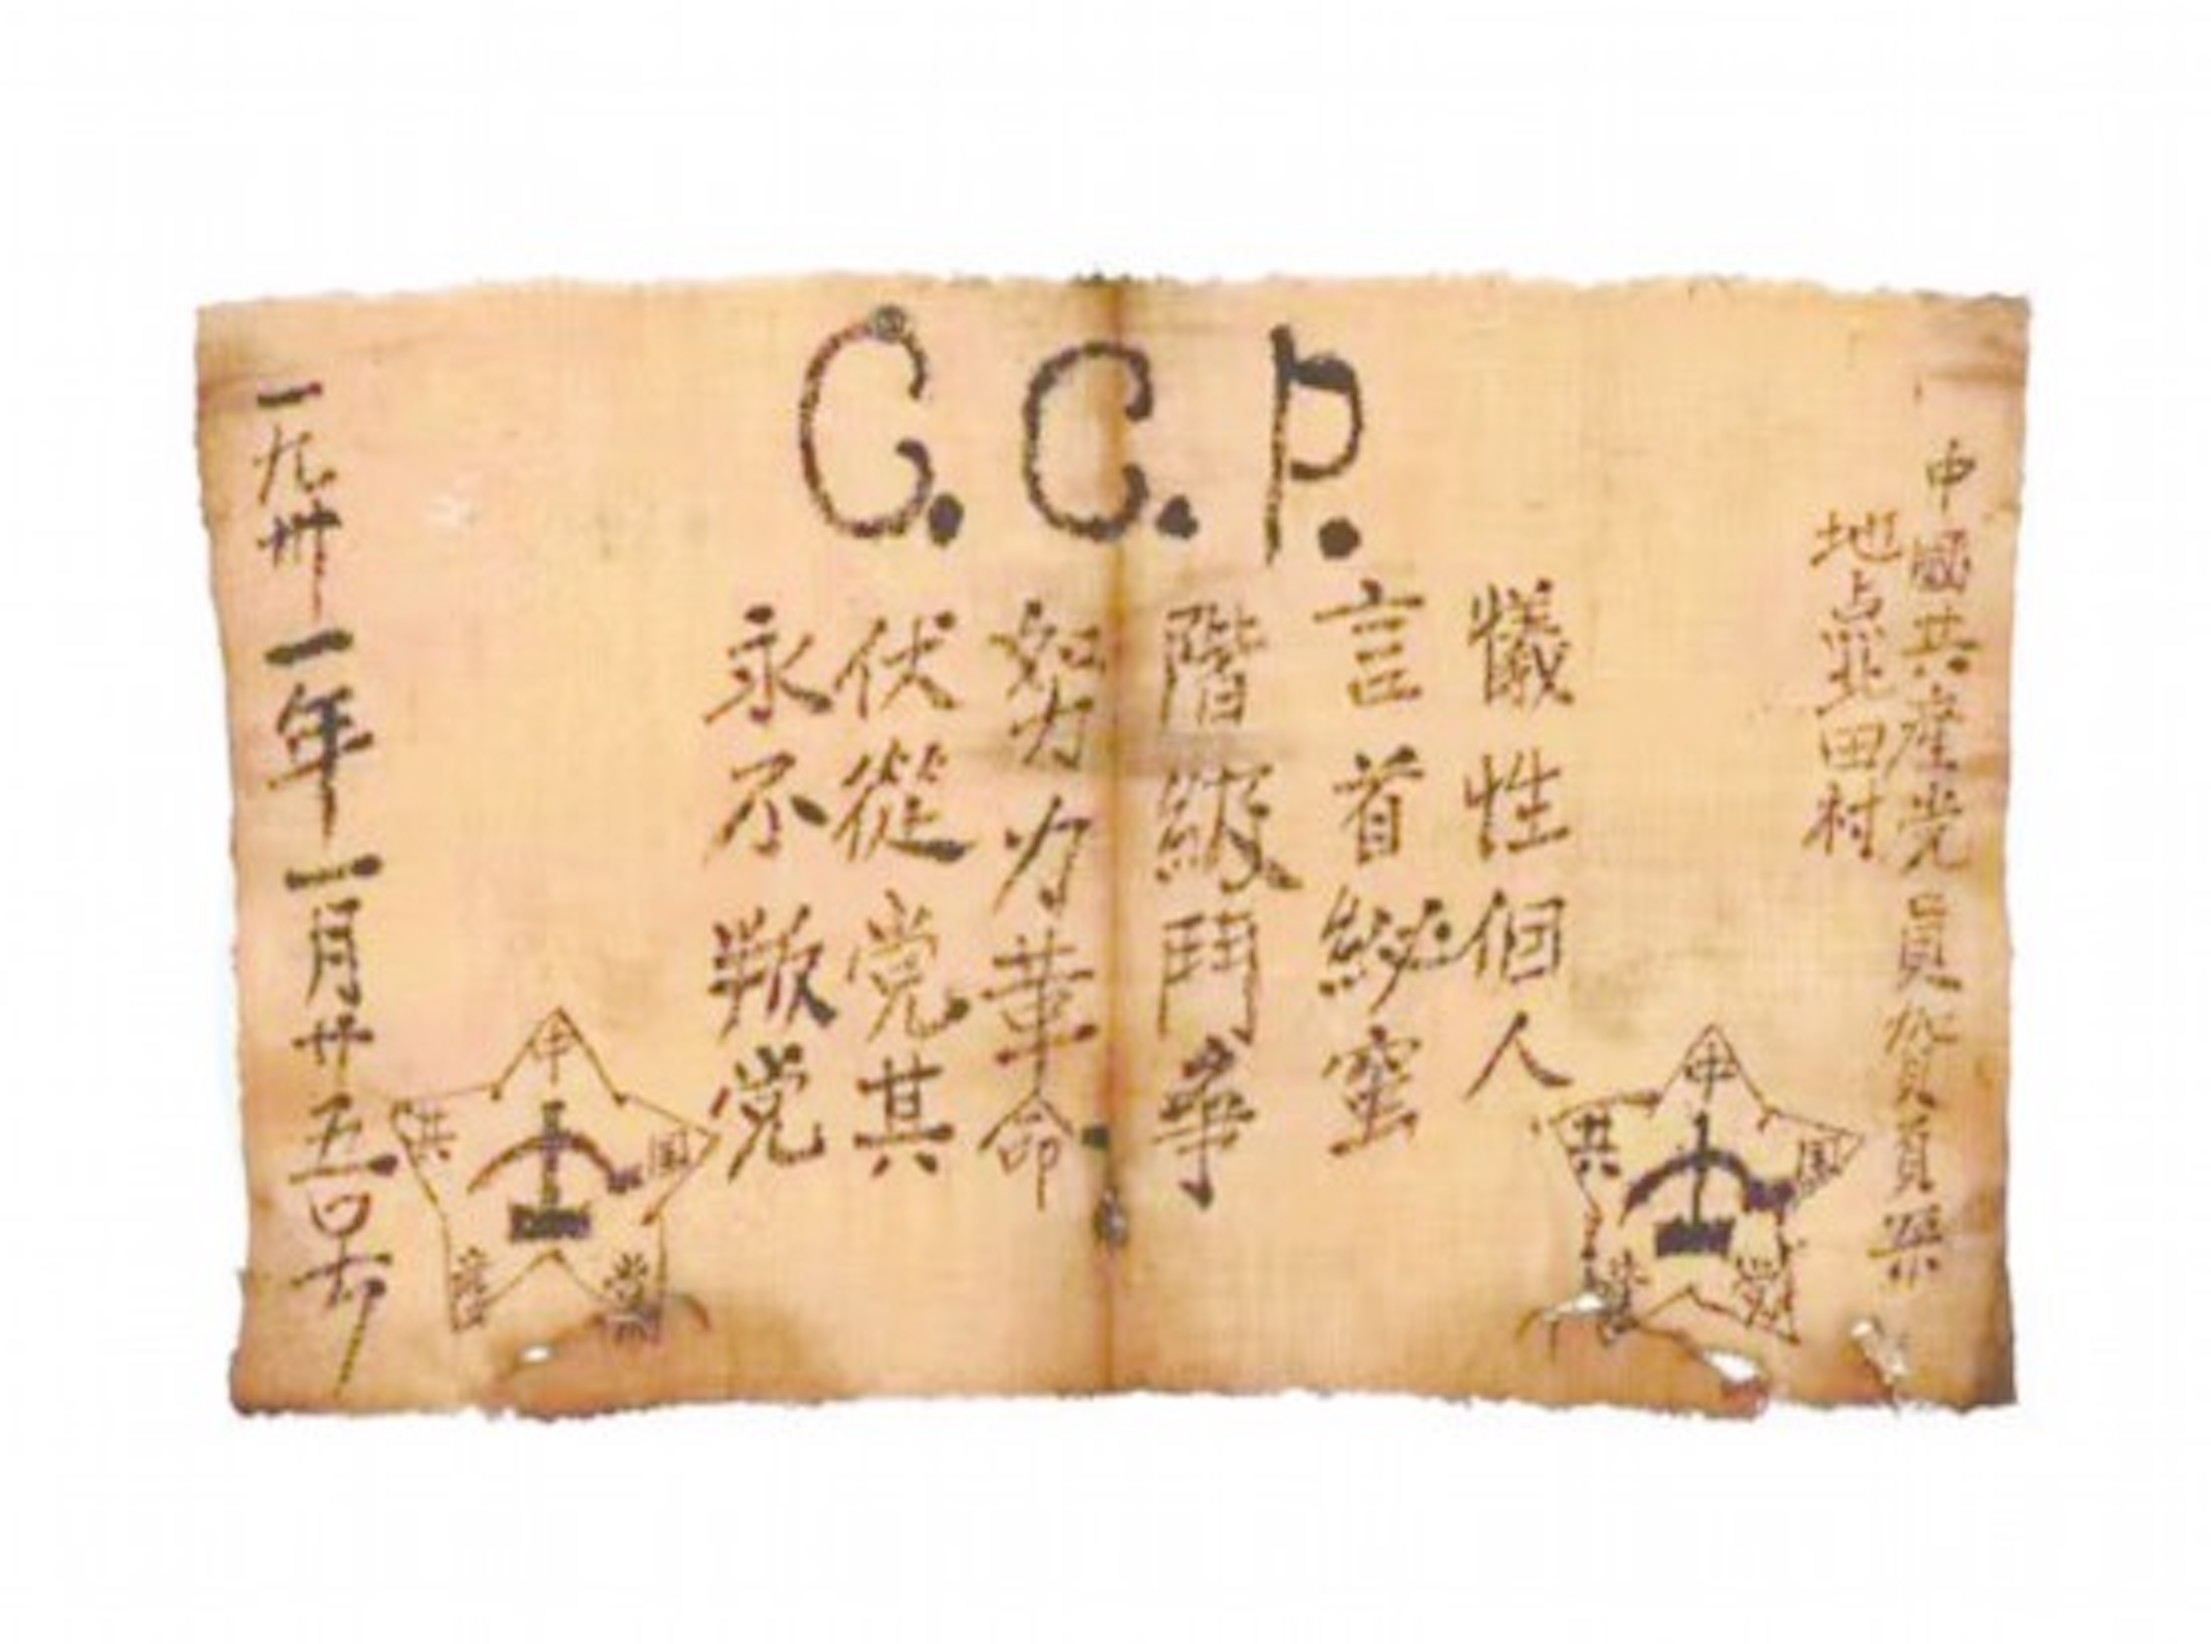 C.C.P.
中國共產党員
地点北田村
犧牲個人
言首秘蜜
階級鬥争
努力革命
伏從党其
永不叛党
一九卅一年一月廿五
中国共產党
中国共產党